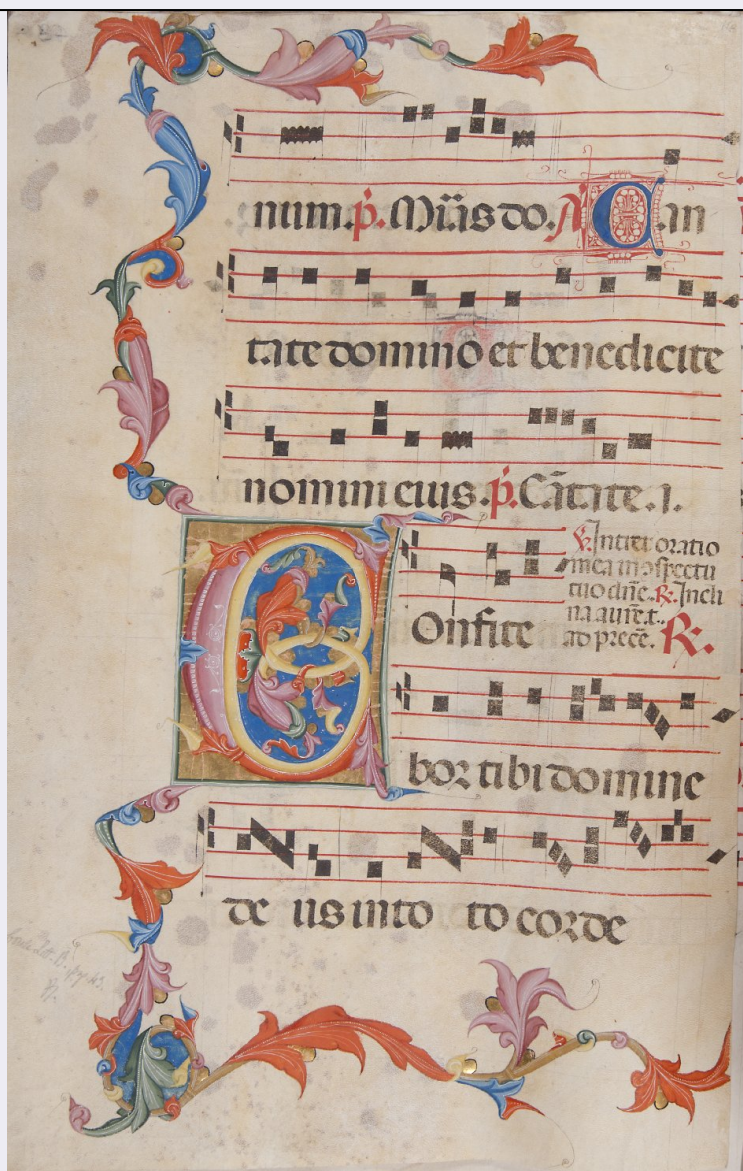 num. p̄. Mīīs do. A Can
tate domino et benedicite
nomini eius. p̄. Cātate. i.
℣. Intret oratio
mea in ɔspectu
tuo dn̄e. ℟. Incli
na aurē t.
ad precē. ℟.
Onfite
bor tibi domine
de us in to to corde